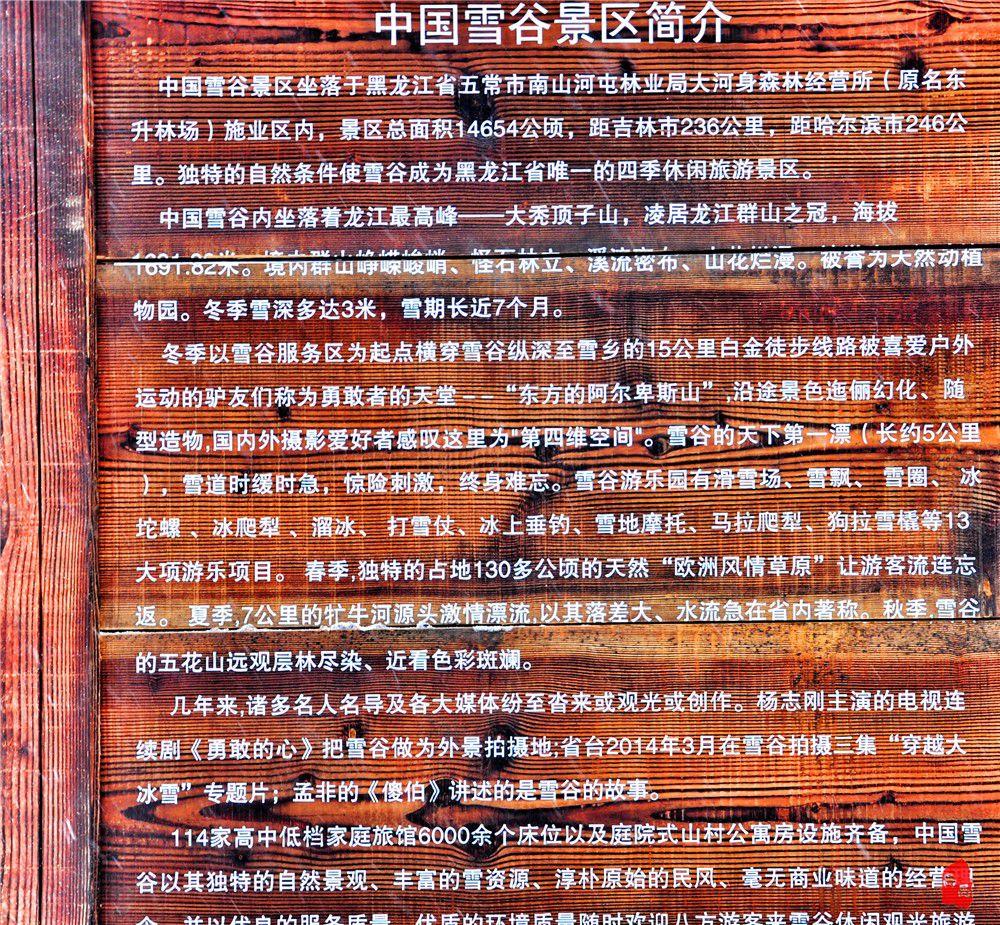 中国雪谷景区简介
中国雪谷景区坐落于黑龙江省五常市南山河屯林业局大河身森林经营所（原名东
升林场）施业区内，景区总面积14654公顷，距吉林市236公里，距哈尔滨市246公
里。独特的自然条件使雪谷成为黑龙江省唯一的四季休闲旅游景区。
中国雪谷内坐落着龙江最高峰——大秃顶子山，凌居龙江群山之冠，海拔
1691.82米。境内群山峥嵘峻峭、怪石林立、溪流密布、山花烂漫。被誉为天然动植
物园。冬季雪深多达3米，雪期长近7个月。
冬季以雪谷服务区为起点横穿雪谷纵深至雪乡的15公里白金徒步线路被喜爱户外
运动的驴友们称为勇敢者的天堂--“东方的阿尔卑斯山”,沿途景色迤俪幻化、随
型造物,国内外摄影爱好者感叹这里为"第四维空间"。雪谷的天下第一漂（长约5公里
），雪道时缓时急，惊险刺激，终身难忘。雪谷游乐园有滑雪场、雪飘、雪圈、冰
坨螺、冰爬犁、溜冰、打雪仗、冰上垂钓、雪地摩托、马拉爬犁、狗拉雪橇等13
大项游乐项目。春季,独特的占地130多公顷的天然“欧洲风情草原”让游客流连忘
返。夏季,7公里的牤牛河源头激情漂流,以其落差大、水流急在省内著称。秋季,雪谷
的五花山远观层林尽染、近看色彩斑斓。
几年来,诸多名人名导及各大媒体纷至沓来或观光或创作。杨志刚主演的电视连
续剧《勇敢的心》把雪谷做为外景拍摄地;省台2014年3月在雪谷拍摄三集“穿越大
冰雪”专题片；孟非的《傻伯》讲述的是雪谷的故事。
114家高中低档家庭旅馆6000余个床位以及庭院式山村公寓房设施齐备，中国雪
谷以其独特的自然景观、丰富的雪资源、淳朴原始的民风、毫无商业味道的经营
念，并以优良的服务质量、优质的环境质量随时欢迎八方游客来雪谷休闲观光旅游